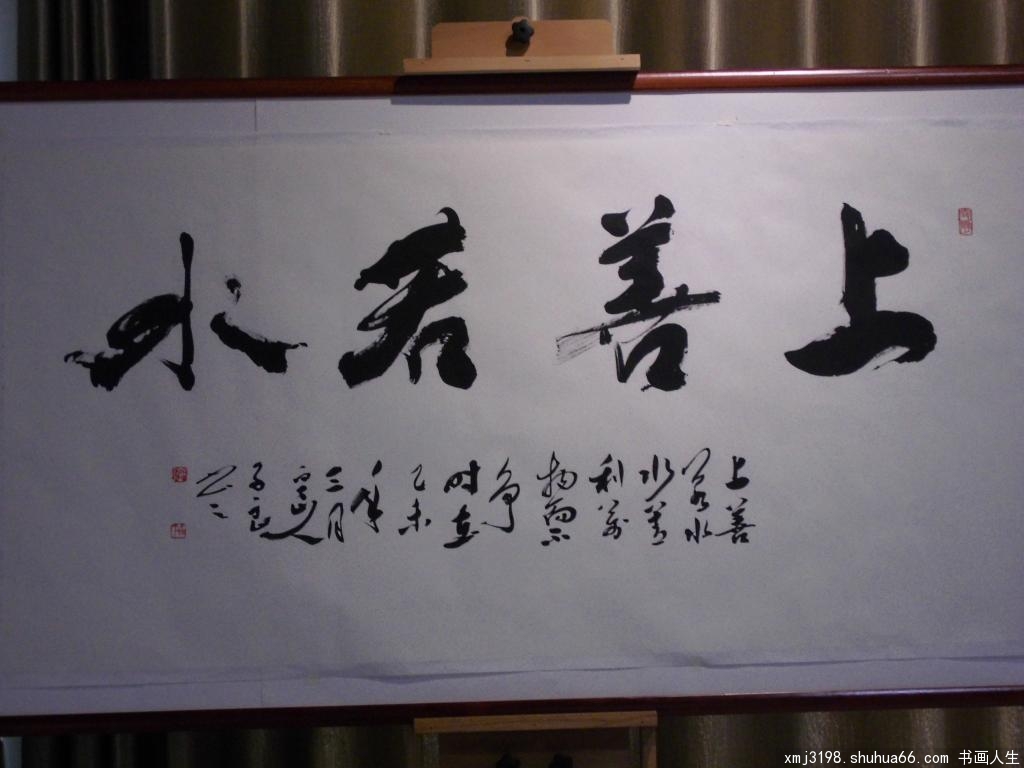 上善若水
上善
若水
水善
利万
物而不
争
时在
乙未
年
三月
xmj3198.shuhua66.com 书画人生